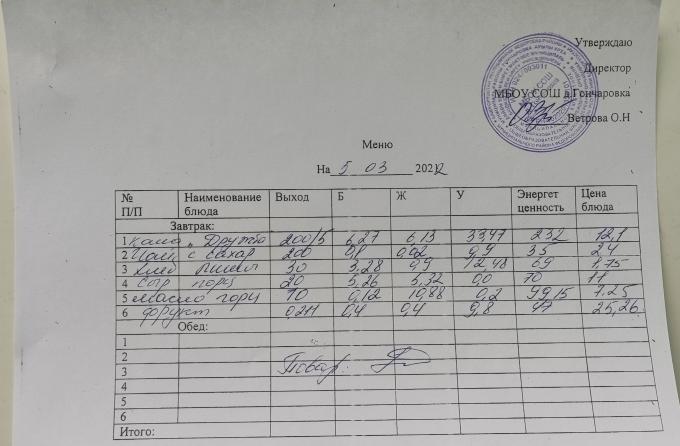 Утверждаю
Директор
МБОУ СОШ д.Гончаровка
Ветрова О.Н
Меню
На 5 03 2022
№ П/П Наименование блюда Выход Б Ж У Энергет ценность Цена блюда
Завтрак:
1 каша "Дружба 200/5 6,27 6,13 33,47 232 12,1
2 Чай с сахар 200 0,1 0,02 9,9 35 24
3 Хлеб 30 3,28 0,9 12,48 69 1,75
4 Сыр порц 20 5,26 5,32 0,0 70 11
5 масло порц 10 0,12 10,88 0,2 99,15 7,25
6 фрукт 0,4 0,4 9,8 25,26
Обед:
1
2
3 Повар:
4
5
6
Итого: